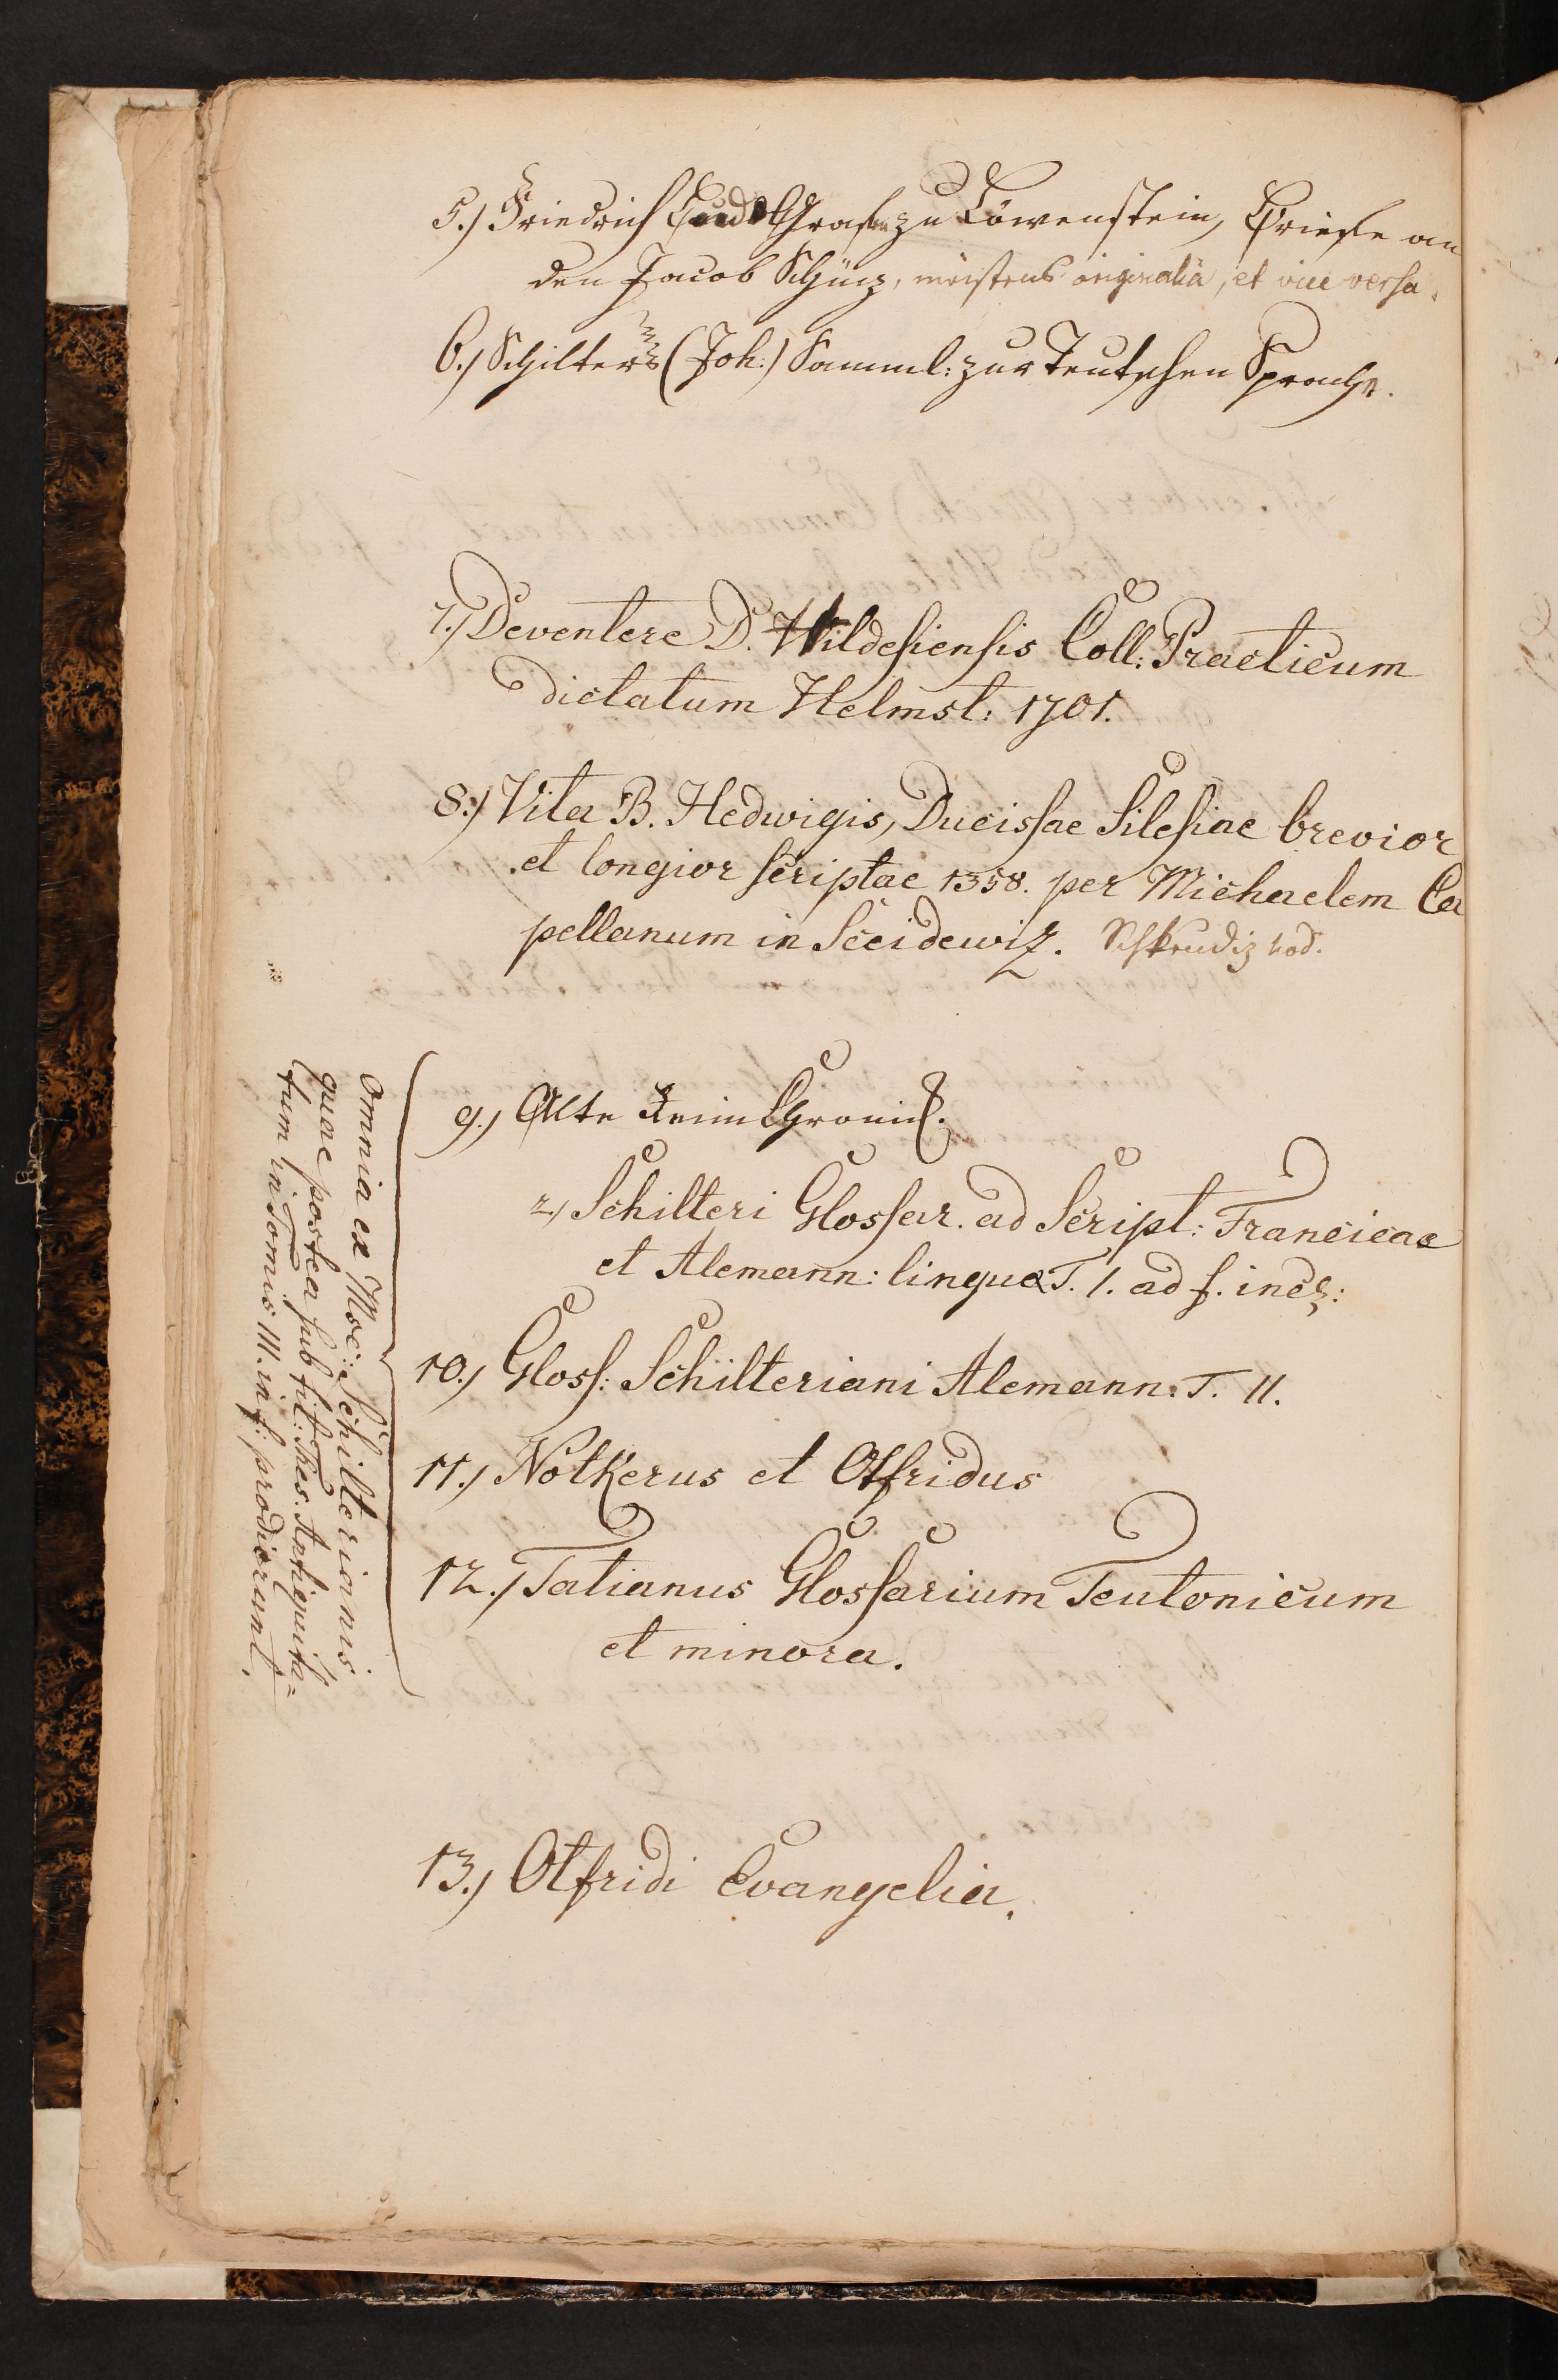 5.) Friedrich Ludw Grafen zu Löwenstein, Briefe an
den Jacob Schüz, meistens originalia, et vice versa.
6.) Schilters (Joh:) Samml: zur Teutschen Sprache.
7.) Deventere D. Hildesiensis Coll: Practicum
dictatum Helmst: 1701.
8.) Vita B. Hedwigis, Ducissae Silesiae brevior
et longior scriptae 1358. per Michaelem Ca
pellanum in Sceidewiz. Schkeudiz hod.
9.) Alte Reim Chronick.
2, Schilteri Glossar. ad Script: Francicae
et Alemann: linguae T. 1. ad f. incl:
10.) Gloss: Schilteriani Alemann: T. II.
11.) Notkerus et Otfridus
12.) Tatianus Glossarium Teutonicum
et minora.
Omnia ex Msc: Schilterianis
quae postea sub tit: Thes. Antiquita=
tum in Tomis III. in f: prodierunt.
13.) Otfridi Evangelia.